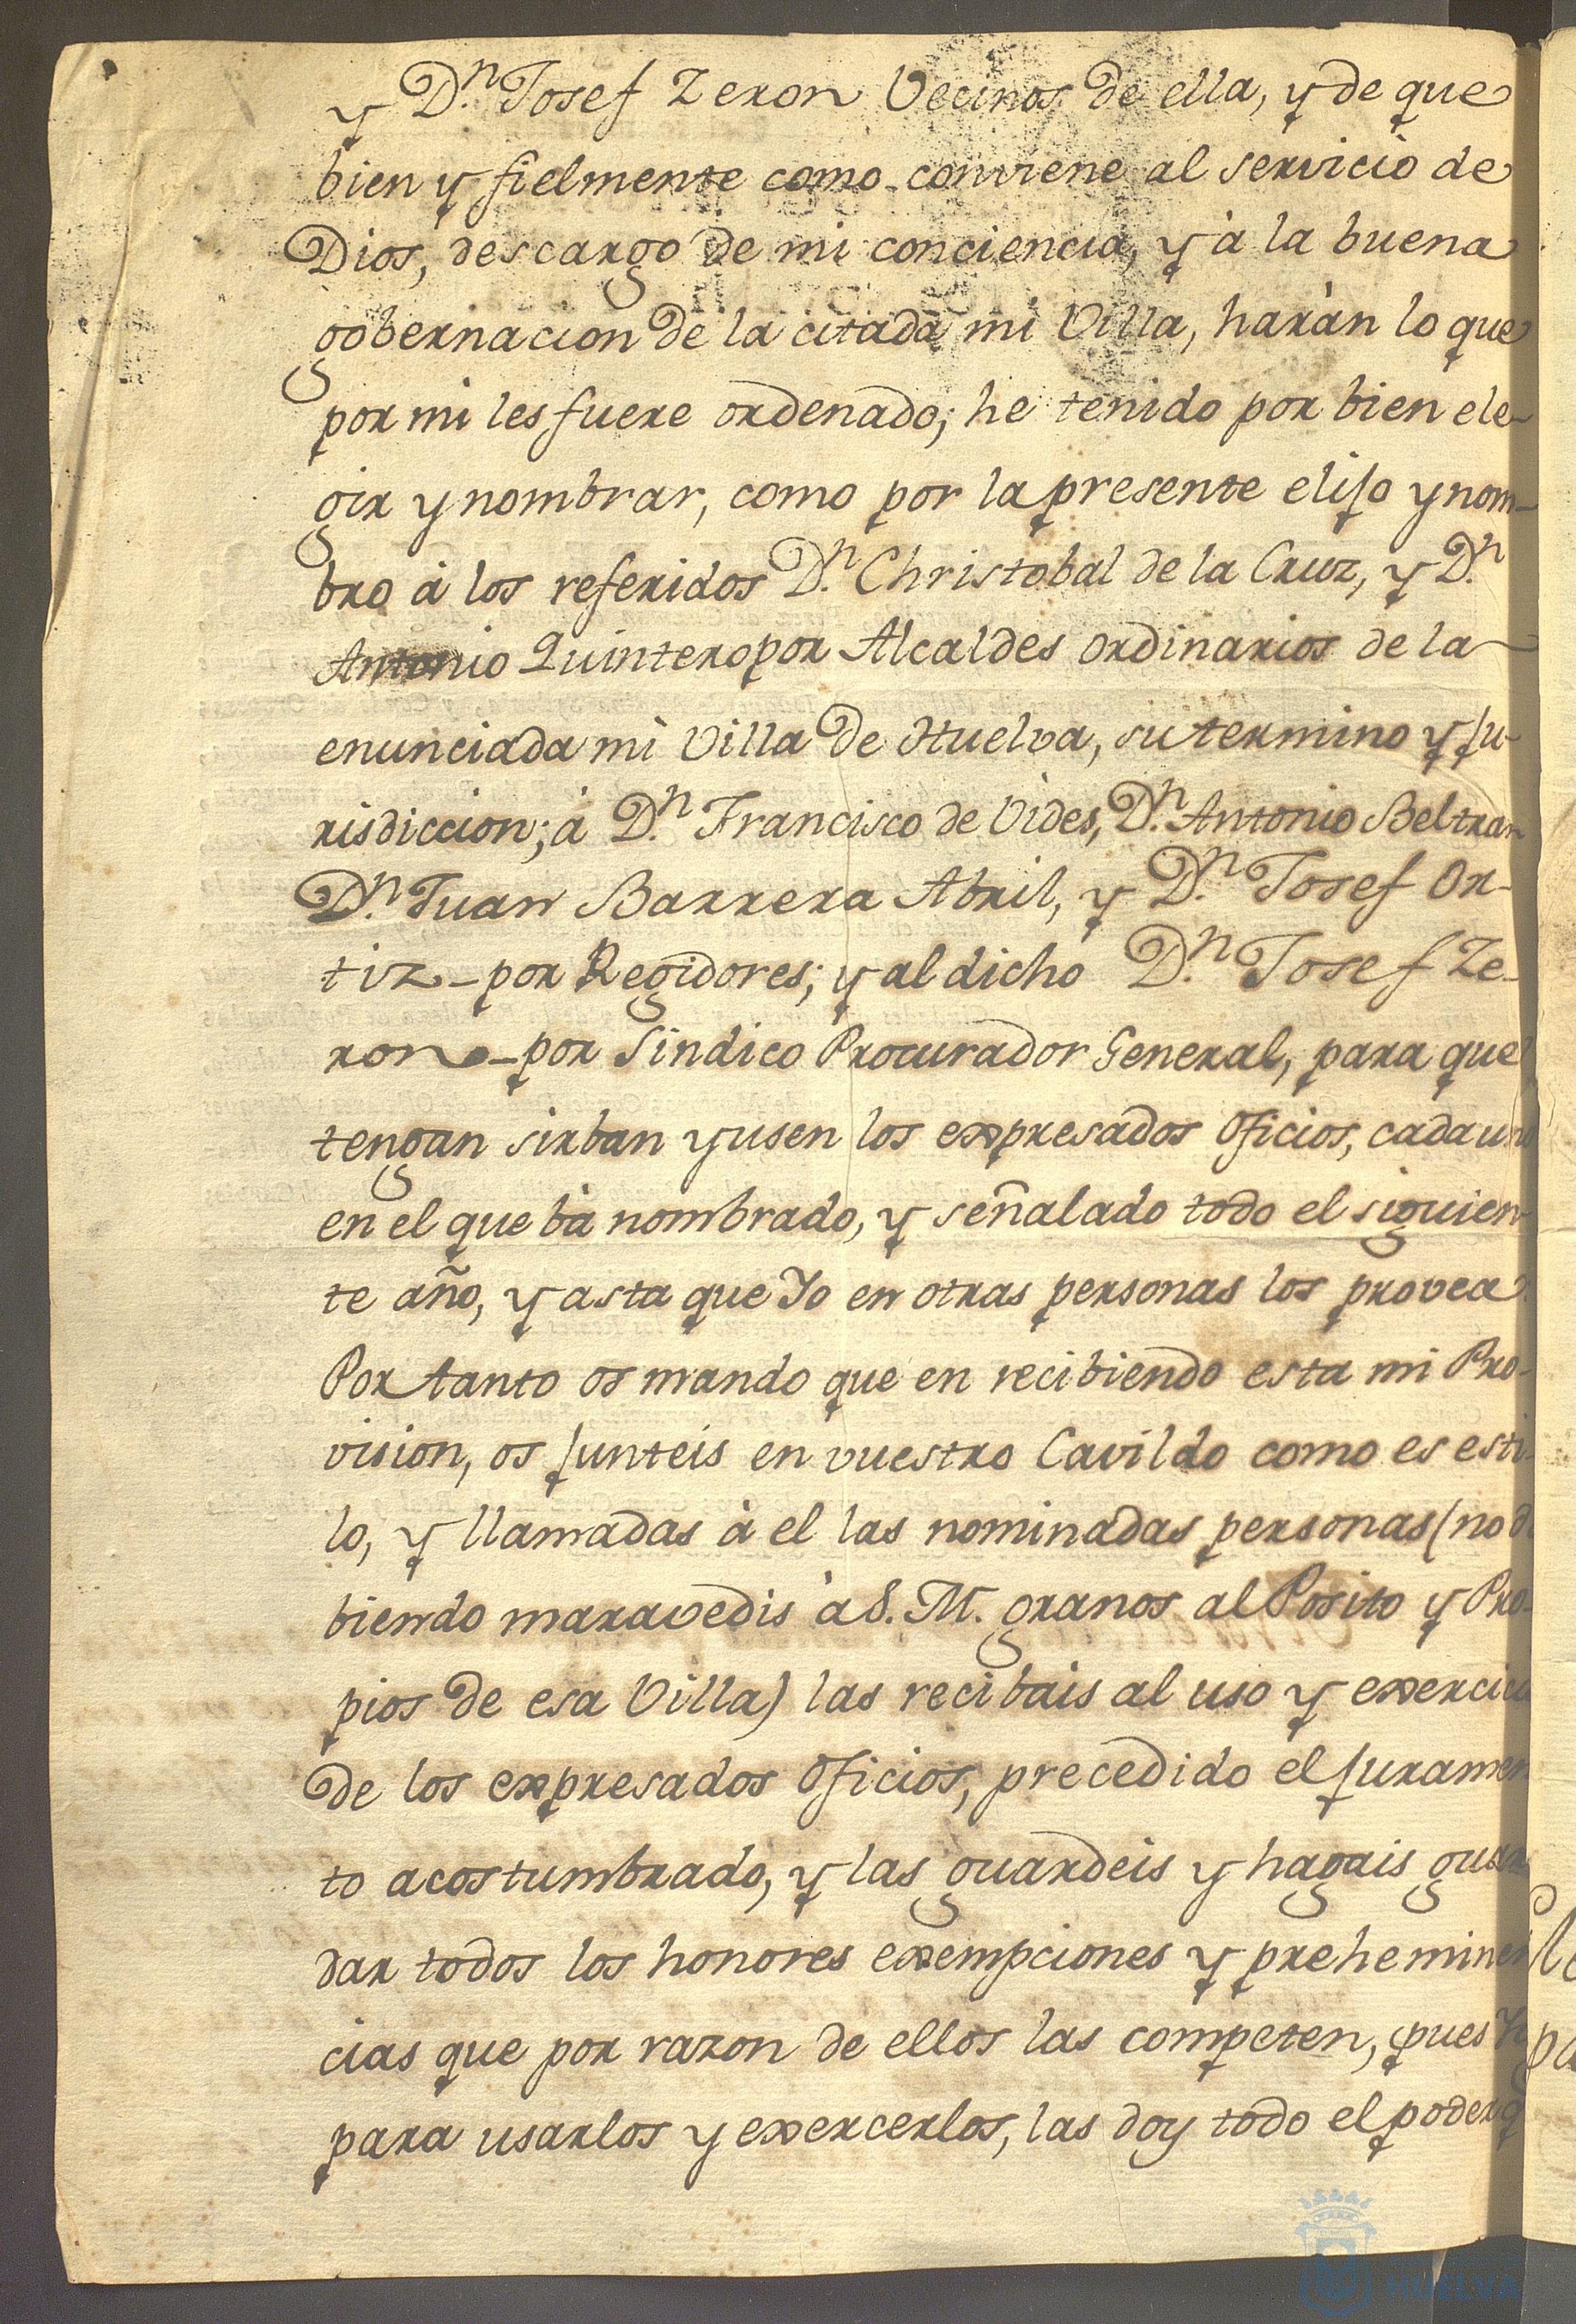 y D.ⁿ Josef Zeron Vecinos de ella, y de que
bien y fielmente como conviene al servicio de
Dios, descargo de mi conciencia, y à la buena
gobernacion de la citada mi Villa, haràn lo que
por mi les fuere ordenado; he tenido por bien ele-
gir y nombrar, como por la presente elijo y nom-
bro à los referidos D.ⁿ Christobal de la Cruz, y D.ⁿ
Antonio Quintero por Alcaldes ordinarios de la
enunciada mi Villa de Huelva, su termino y ju-
risdiccion; à D.ⁿ Francisco de Vides, D.ⁿ Antonio Beltran
D.ⁿ Juan Barrera Abril, y D.ⁿ Josef Or-
tiz - por Regidores; y al dicho D.ⁿ Josef Ze-
ron - por Sindico Procurador General, para que
tengan sirban y usen los expresados Oficios, cada uno
en el que bà nombrado, y señalado todo el siguien-
te año, y asta que Yo en otras personas los provea.
Por tanto os mando que en recibiendo esta mi Pro-
vision, os junteis en vuestro Cavildo como es esti-
lo, y llamadas à el las nominadas personas (no de
biendo maravedis à S. M. granos al Posito y Pro-
pios de esa Villa) las recibais al uso y exercicio
de los expresados Oficios, precedido el juramen
to acostumbrado, y las guardeis y hagais guar
dar todos los honores exempciones y preheminen
cias que por razon de ellos las competen, pues
para usarlos y exercerlos, las doy todo el poder q
HUELVA